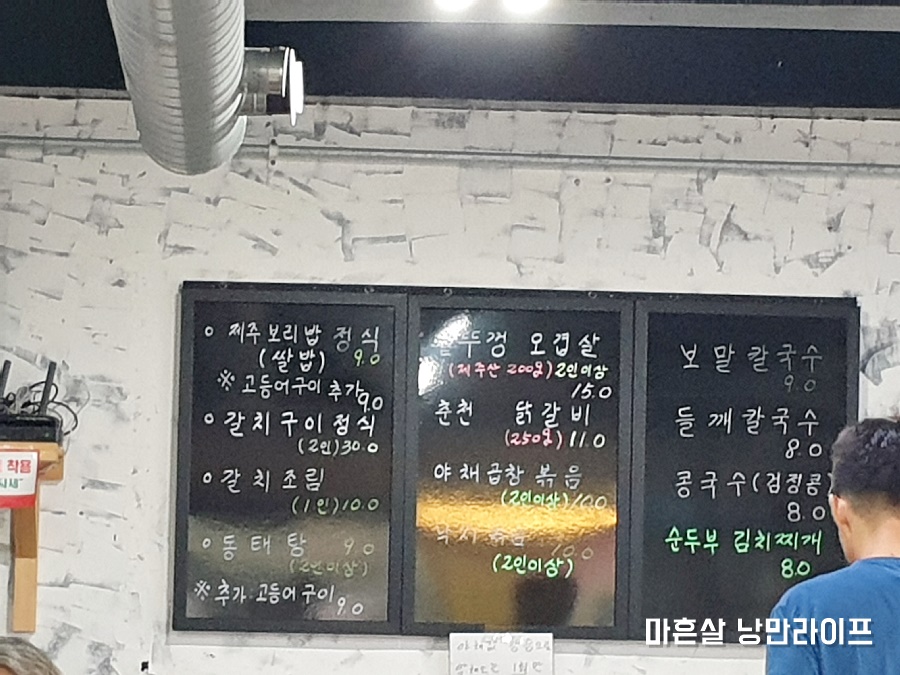 ○ 제주 보리밥 정식
(쌀밥) 9.0
※ 고등어구이 추가 9.0
○ 갈치구이정식
(2인)30.0
○ 갈치조림
(1인)10.0
○ 동태탕 9.0
(2인이상)
※ 추가 고등어구이 9.0
두껑 오겹살
(제주산 200g)2인이상
15.0
춘천 닭갈비
(250g) 11.0
야채곱창 볶음
(2인이상)10.0
10.0
(2인이상)
보말칼국수
9.0
들깨칼국수
8.0
콩국수(검정콩
8.0
순두부 김치찌개
8.0
착용
마흔살 낭만라이프